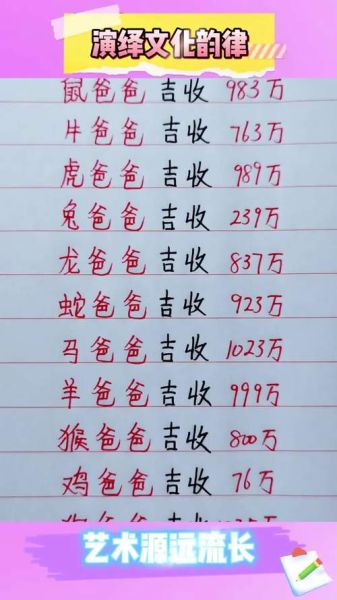 演绎文化韵律
鼠爸爸 吉收 983万
牛爸爸 吉收 763万
虎爸爸 吉收 989万
兔爸爸 吉收 239万
龙爸爸 吉收 837万
蛇爸爸 吉收 923万
马爸爸 吉收 1023万
羊爸爸 吉收 999万
猴爸爸 吉收 800万
鸡爸爸 吉收 76万
艺术源远流长